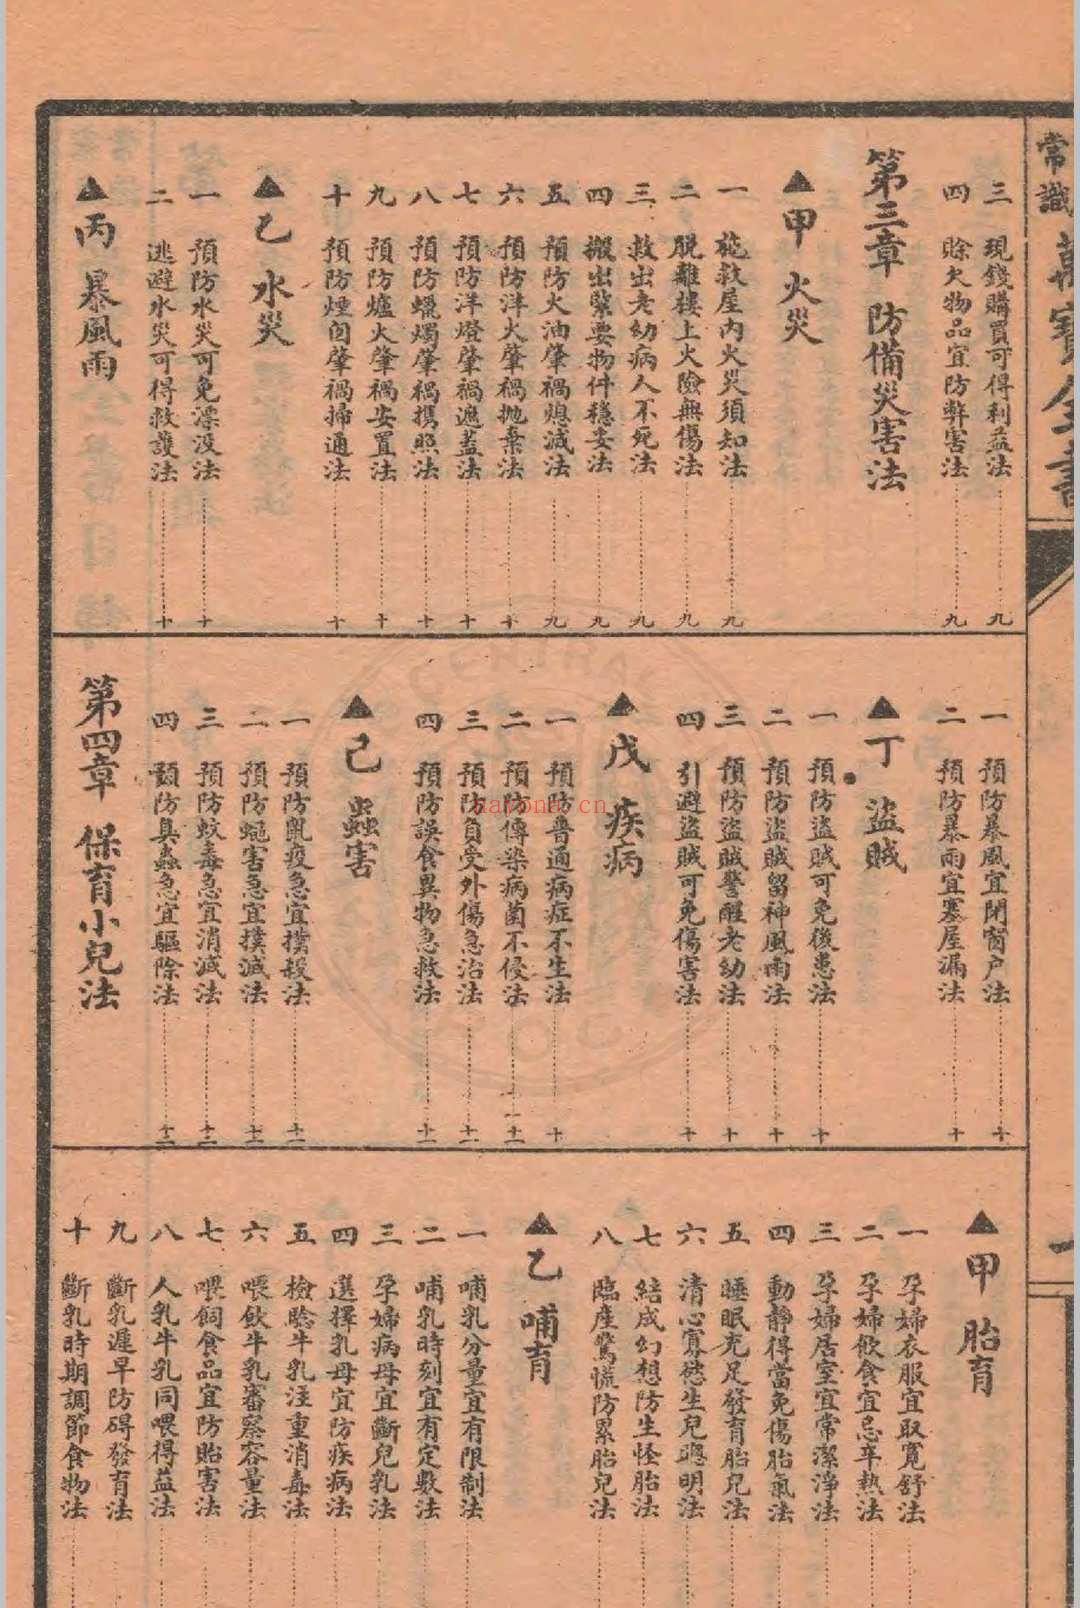 常識萬寶全書
三 現錢購買可得利益法 九
四 賒欠物品宜防弊害法 九
第三章 防備災害法
▲甲 火災
一 施救屋內火災須知法 九
二 脫離樓上火險無傷法 九
三 救出老幼病人不死法 九
四 搬出緊要物件穩妥法 九
五 預防火油肇禍熄滅法 九
六 預防洋火肇禍拋棄法 十
七 預防洋燈肇禍遮蓋法 十
八 預防蠟燭肇禍攜照法 十
九 預防爐火肇禍安置法 十
十 預防煙囪肇禍掃通法 十
▲乙 水災
一 預防水災可免漂沒法 十
二 逃避水災可得救護法 十
▲丙 暴風雨
一 預防暴風宜閉窗户法 十
二 預防暴雨宜塞屋漏法 十
▲丁 盜賊
一 預防盜賊可免後患法 十
二 預防盜賊留神風雨法 十
三 預防盜賊警醒老幼法 十
四 引避盜賊可免傷害法 十
▲戊 疾病
一 預防普通病症不生法 十
二 預防傳染病菌不侵法 十一
三 預防負受外傷急治法 十一
四 預防誤食異物急救法 十一
▲己 蟲害
一 預防鼠疫急宜撲殺法 十一
二 預防蠅害急宜撲滅法 十一
三 預防蚊毒急宜消滅法 十二
四 預防臭蟲急宜驅除法 十二
第四章 保育小兒法
▲甲 胎育
一 孕婦衣服宜取寬舒法
二 孕婦飲食宜忌辛熱法
三 孕婦居室宜常潔淨法
四 動靜得當免傷胎氣法
五 睡眠充足發育胎兒法
六 清心寡慾生兒聰明法
七 結成幻想防生怪胎法
八 臨產驚慌防累胎兒法
▲乙 哺育
一 哺乳分量宜有限制法
二 哺乳時刻宜有定數法
三 孕婦病母宜斷兒乳法
四 選擇乳母宜防疾病法
五 檢驗牛乳注重消毒法
六 喂飲牛乳審察容量法
七 喂飼食品宜防貽害法
八 人乳牛乳同喂得益法
九 斷乳遲早防碍發育法
十 斷乳時期調節食物法
nayona.cn